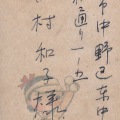 市中野区東中
和通り一ノ五
村和子様